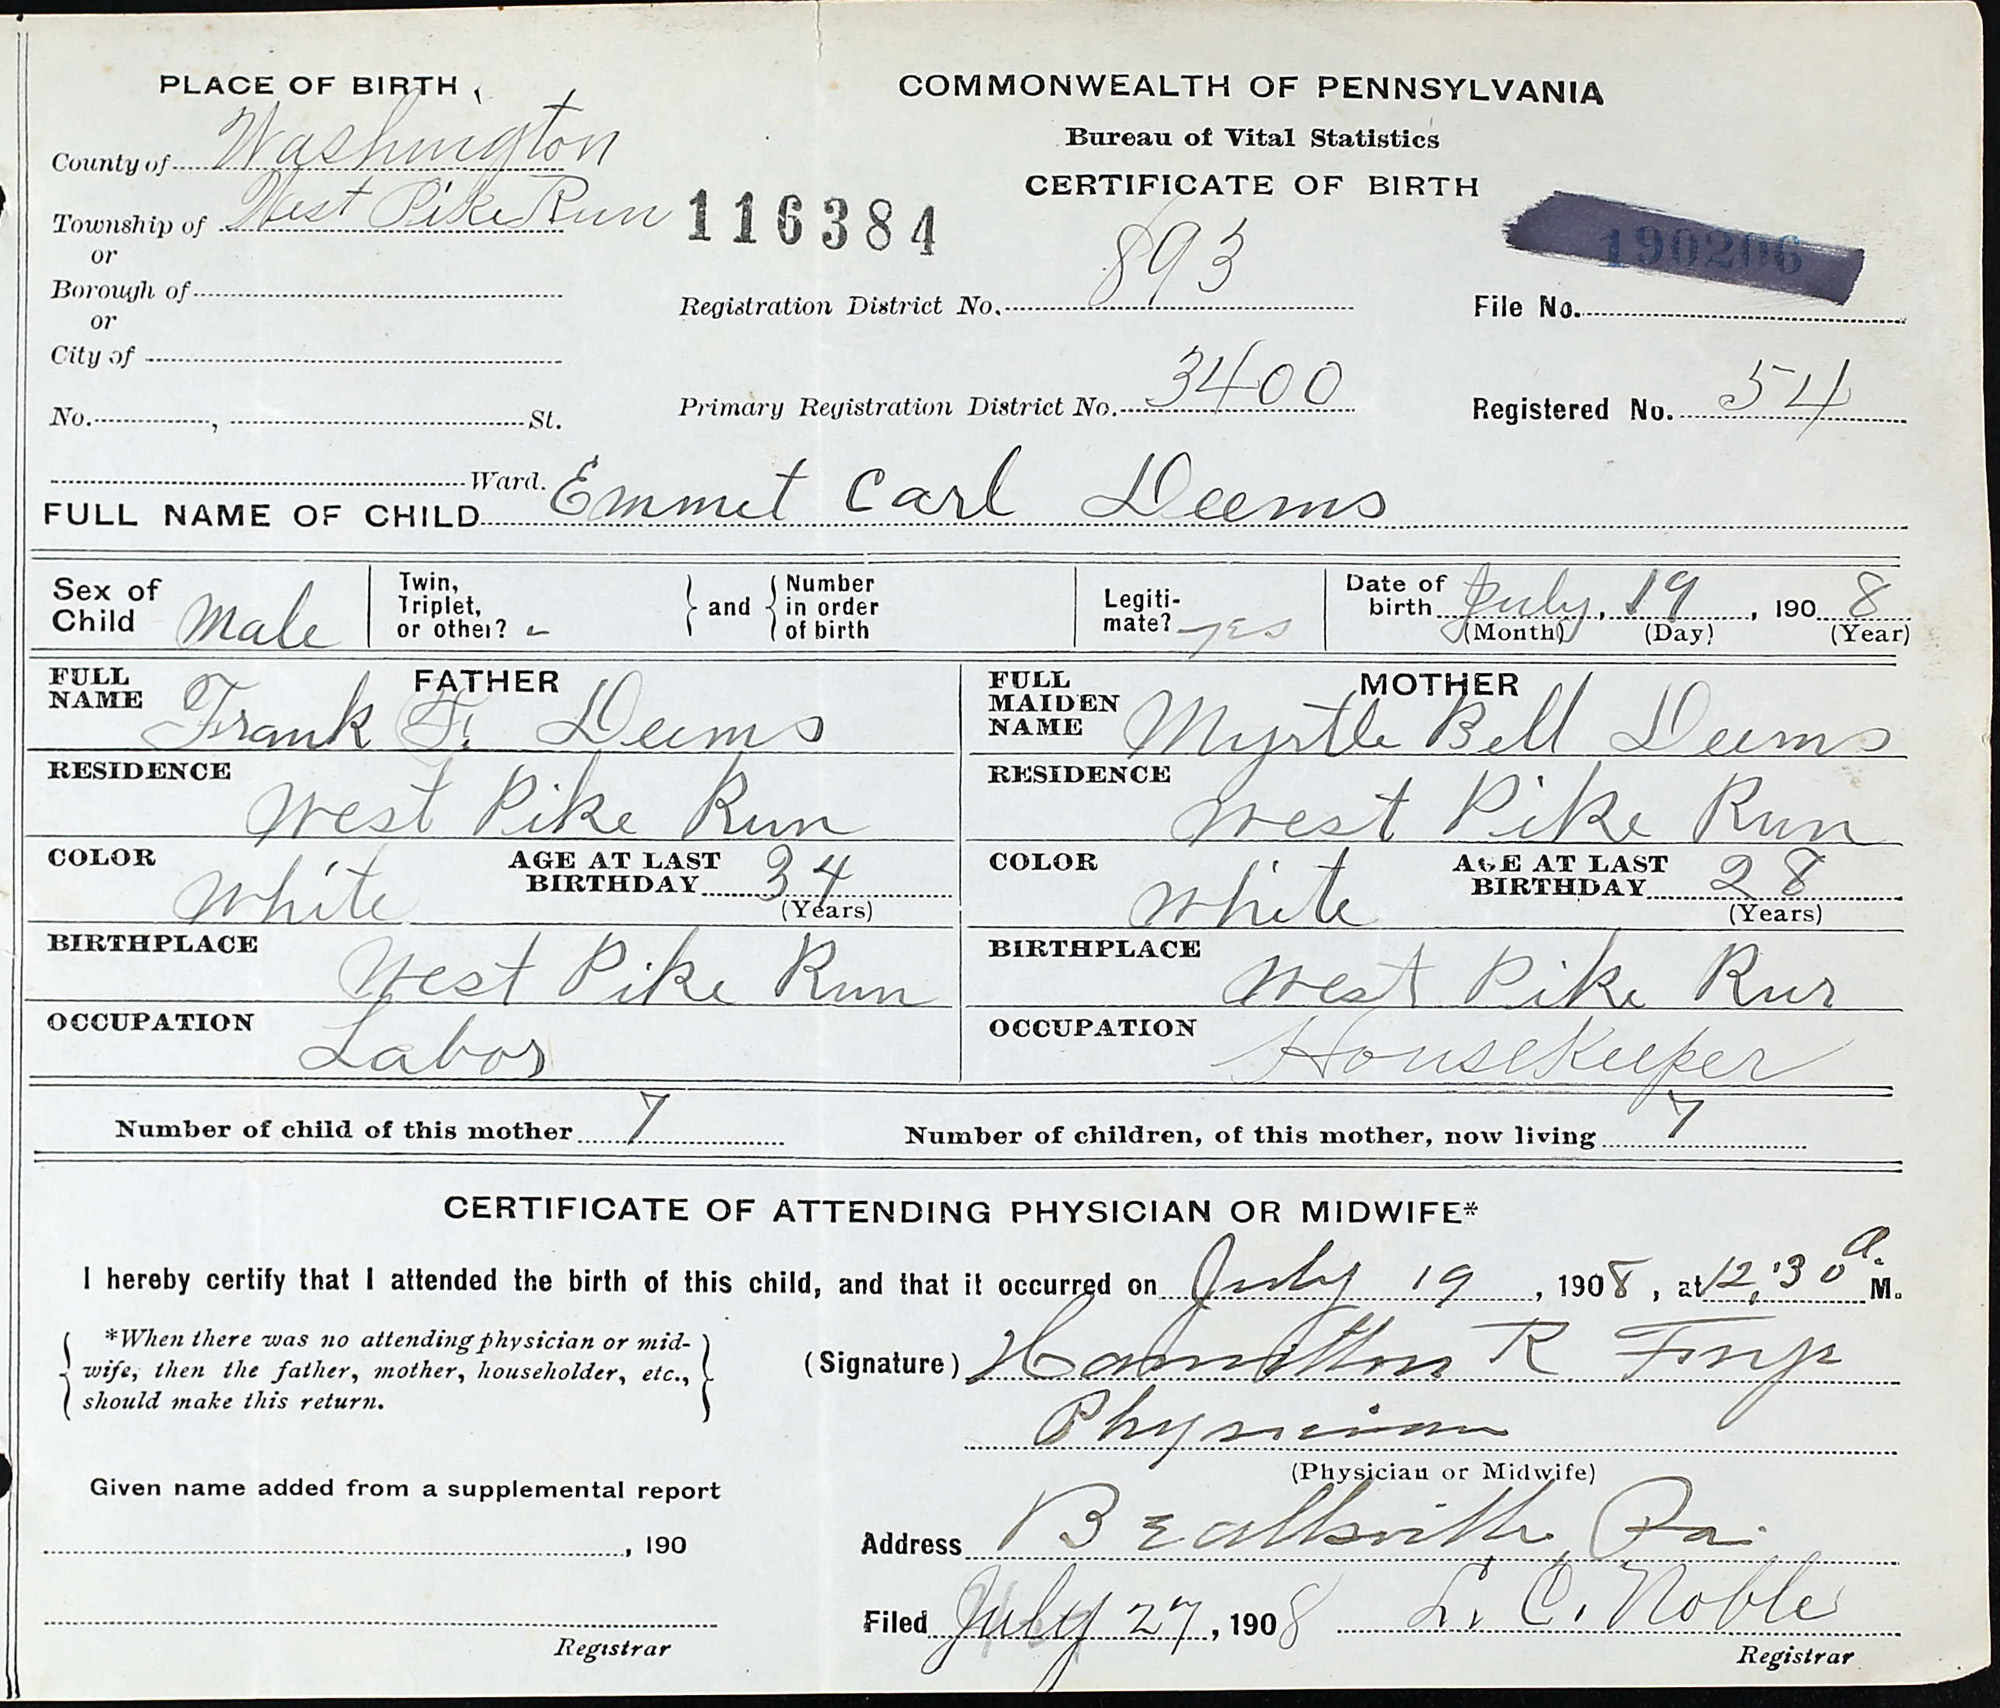 PLACE OF BIRTH
County of Washington
Township of West Pike Run
or
Borough of
or
City of
No. , St.
Ward.
COMMONWEALTH OF PENNSYLVANIA
Bureau of Vital Statistics
CERTIFICATE OF BIRTH
116384
190206
Registration District No. 893
File No.
Primary Registration District No. 3400
Registered No. 54
FULL NAME OF CHILD Emmet Carl Deems
Sex of Child Male
Twin, Triplet, or other? and Number in order of birth
Legitimate? yes
Date of birth July, 19, 1908
(Month) (Day) (Year)
FATHER
FULL NAME Frank F. Deems
RESIDENCE West Pike Run
COLOR White AGE AT LAST BIRTHDAY 34
(Years)
BIRTHPLACE West Pike Run
OCCUPATION Labor
MOTHER
FULL MAIDEN NAME Myrtle Bell Deems
RESIDENCE West Pike Run
COLOR White AGE AT LAST BIRTHDAY 28
(Years)
BIRTHPLACE West Pike Run
OCCUPATION Housekeeper
Number of child of this mother 7 Number of children, of this mother, now living 7
CERTIFICATE OF ATTENDING PHYSICIAN OR MIDWIFE*
I hereby certify that I attended the birth of this child, and that it occurred on July 19, 1908, at 12,30 a. M.
*When there was no attending physician or mid-
wife, then the father, mother, householder, etc.,
should make this return.
(Signature) Hamilton R
Physician
(Physician or Midwife)
Given name added from a supplemental report
, 190
Registrar
Address Beallsville, Pa.
Filed July 27, 1908 L. C. Noble
Registrar